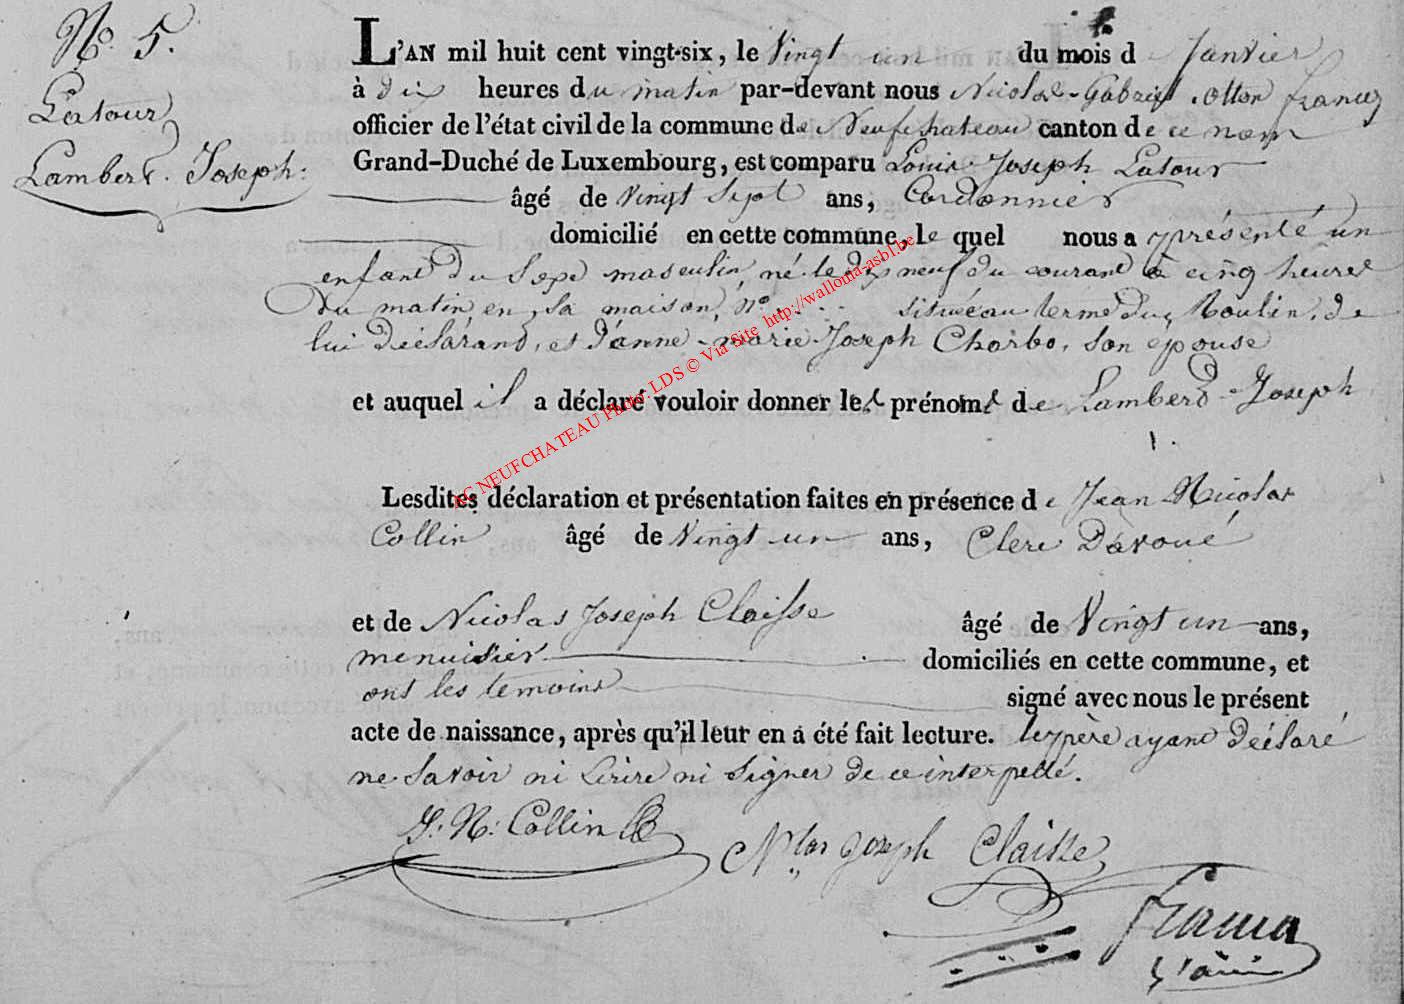 N° 5.
Latour
Lambert-Joseph:
L'AN mil huit cent vingt-six, le Vingt un du mois de Janvier
à dix heures du matin par-devant nous Nicolas-Gabriel
officier de l'état civil de la commune de Neufchateau canton de ce nom
Grand-Duché de Luxembourg, est comparu Louis-Joseph Latour
âgé de Vingt Sept ans, Cordonnier
domicilié en cette commune, le quel nous a présenté un
enfant du Sexe masculin, né le dix neuf du courant à cinq heures
Du matin en sa maison, N° située au terme du Moulin, de
lui Déclarand, et d'anne-marie-Joseph Charbo, son epouse
et auquel il a déclaré vouloir donner les prénoms de Lamberd-Joseph
Lesdites déclaration et présentation faites en présence de Jean Nicolas
Collin âgé de Vingt un ans, Clerc D'avoué
et de Nicolas Joseph Claisse âgé de Vingt un ans,
menuisier domiciliés en cette commune, et
ont les temoins signé avec nous le présent
acte de naissance, après qu'il leur en a été fait lecture. le père ayant Déclaré
ne Savoir ni Ecrire ni Signer de ce interpellé.
J: N: Collin
Nlas Joseph Claisse
AC NEUFCHATEAU Photo. LDS © Via Site http://wallonia-asbl.be